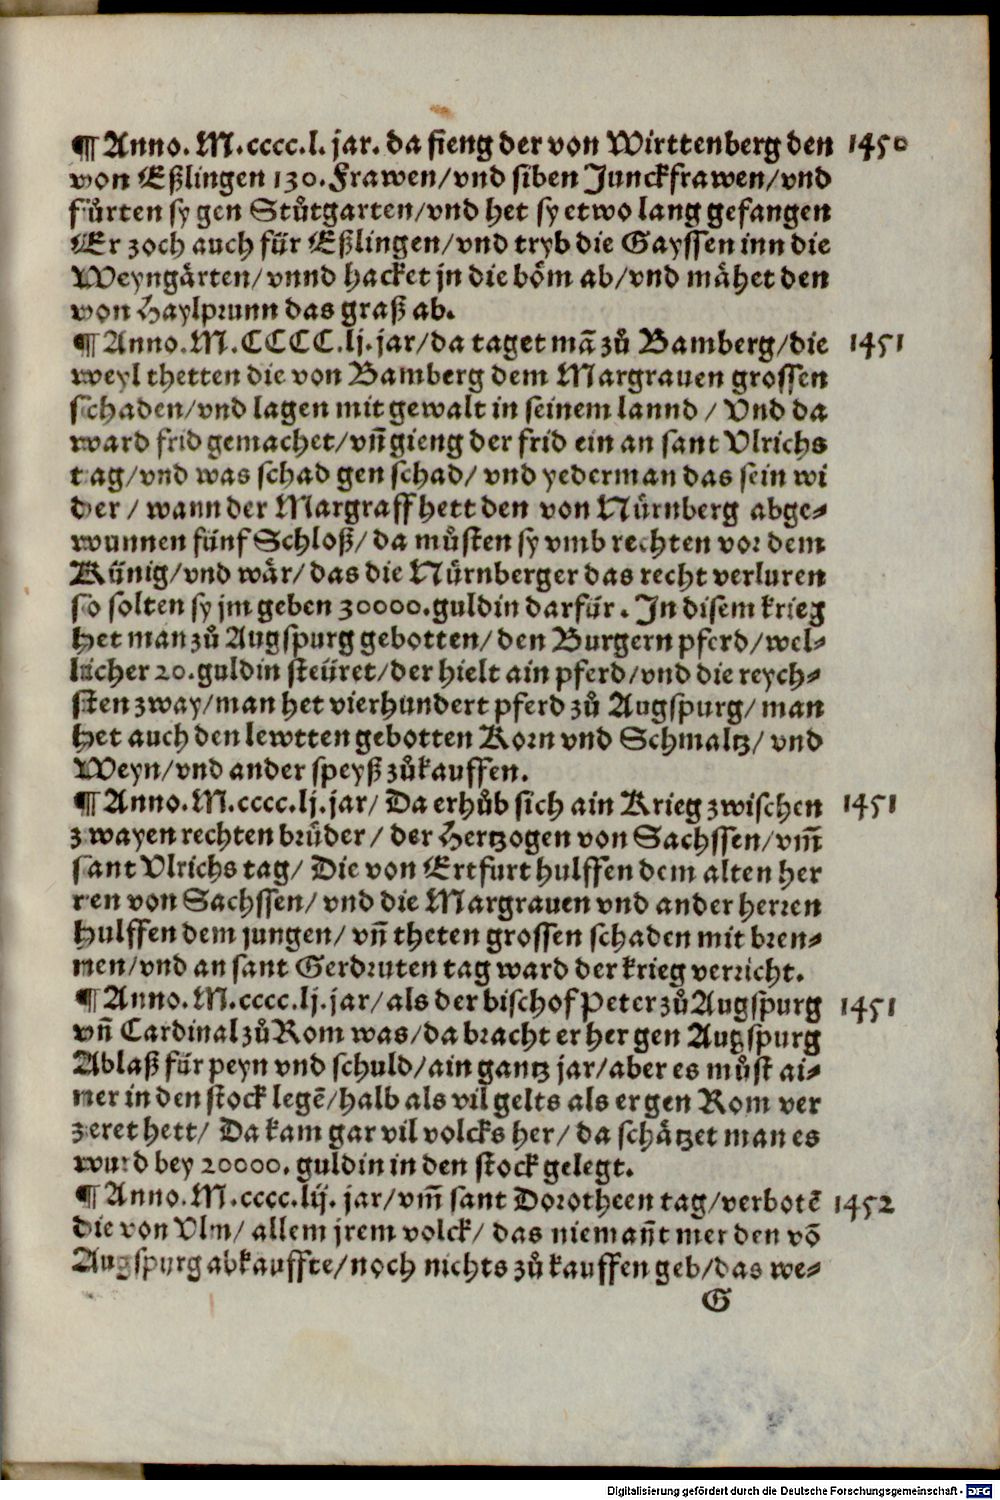 ¶ Anno. M.cccc.l. jar. da fieng der von Wirttenberg den 1450
von Eßlingen 130. Frawen/vnd siben Junckfrawen/vnd
fůrten sy gen Stůtgarten/vnd het sy etwo lang gefangen
Er zoch auch für Eßlingen/vnd tryb die Gayssen inn die
Weyngärten/vnnd hacket jn die böm ab/vnd mähet den
von Haylprunn das graß ab.
¶ Anno. M.CCCC.lj. jar/da taget mā zů Bamberg/die 1451
weyl thetten die von Bamberg dem Margrauen grossen
schaden/vnd lagen mit gewalt in seinem lannd / Vnd da
ward frid gemachet/vñ gieng der frid ein an sant Vlrichs
tag/vnd was schad gen schad/ vnd yederman das sein wi
der / wann der Margraff hett den von Nürnberg abge-
wunnen fünf Schloß/ da můsten sy vmb rechten vor dem
Künig/vnd wär/ das die Nürnberger das recht verluren
so solten sy jm geben 30000. guldin darfür. In disem krieg
het man zů Augspurg gebotten/ den Burgern pferd/wel-
licher 20. guldin steüret/der hielt ain pferd/vnd die reych-
sten zway/man het vierhundert pferd zů Augspurg/ man
het auch den lewtten gebotten Korn vnd Schmaltz/ vnd
Weyn/vnd ander speyß zůkauffen.
¶ Anno. M.cccc.lj. jar/ Da erhůb sich ain Krieg zwischen 1451
zwayen rechten brůder / der Hertzogen von Sachssen/vm̄
sant Vlrichs tag/ Die von Ertfurt hulffen dem alten her
ren von Sachssen/ vnd die Margrauen vnd ander herren
hulffen dem jungen/ vñ theten grossen schaden mit bren-
nen/vnd an sant Gerdruten tag ward der krieg verricht.
¶ Anno. M.cccc.lj. jar/als der bischof Peter zů Augspurg 1451
vñ Cardinal zů Rom was/da bracht er her gen Augspurg
Ablaß für peyn vnd schuld/ain gantz jar/aber es můst ai-
ner in den stock legē/halb als vil gelts als er gen Rom ver
zeret hett/ Da kam gar vil volcks her/ da schätzet man es
wurd bey 20000. guldin in den stock gelegt.
¶ Anno. M.cccc.lij. jar/vm̄ sant Dorotheen tag/verbotē 1452
die von Vlm/ allem jrem volck/ das niemañt mer den vō
Augspurg abkauffte/noch nichts zů kauffen geb/das we-
G
Digitalisierung gefördert durch die Deutsche Forschungsgemeinschaft - DFG